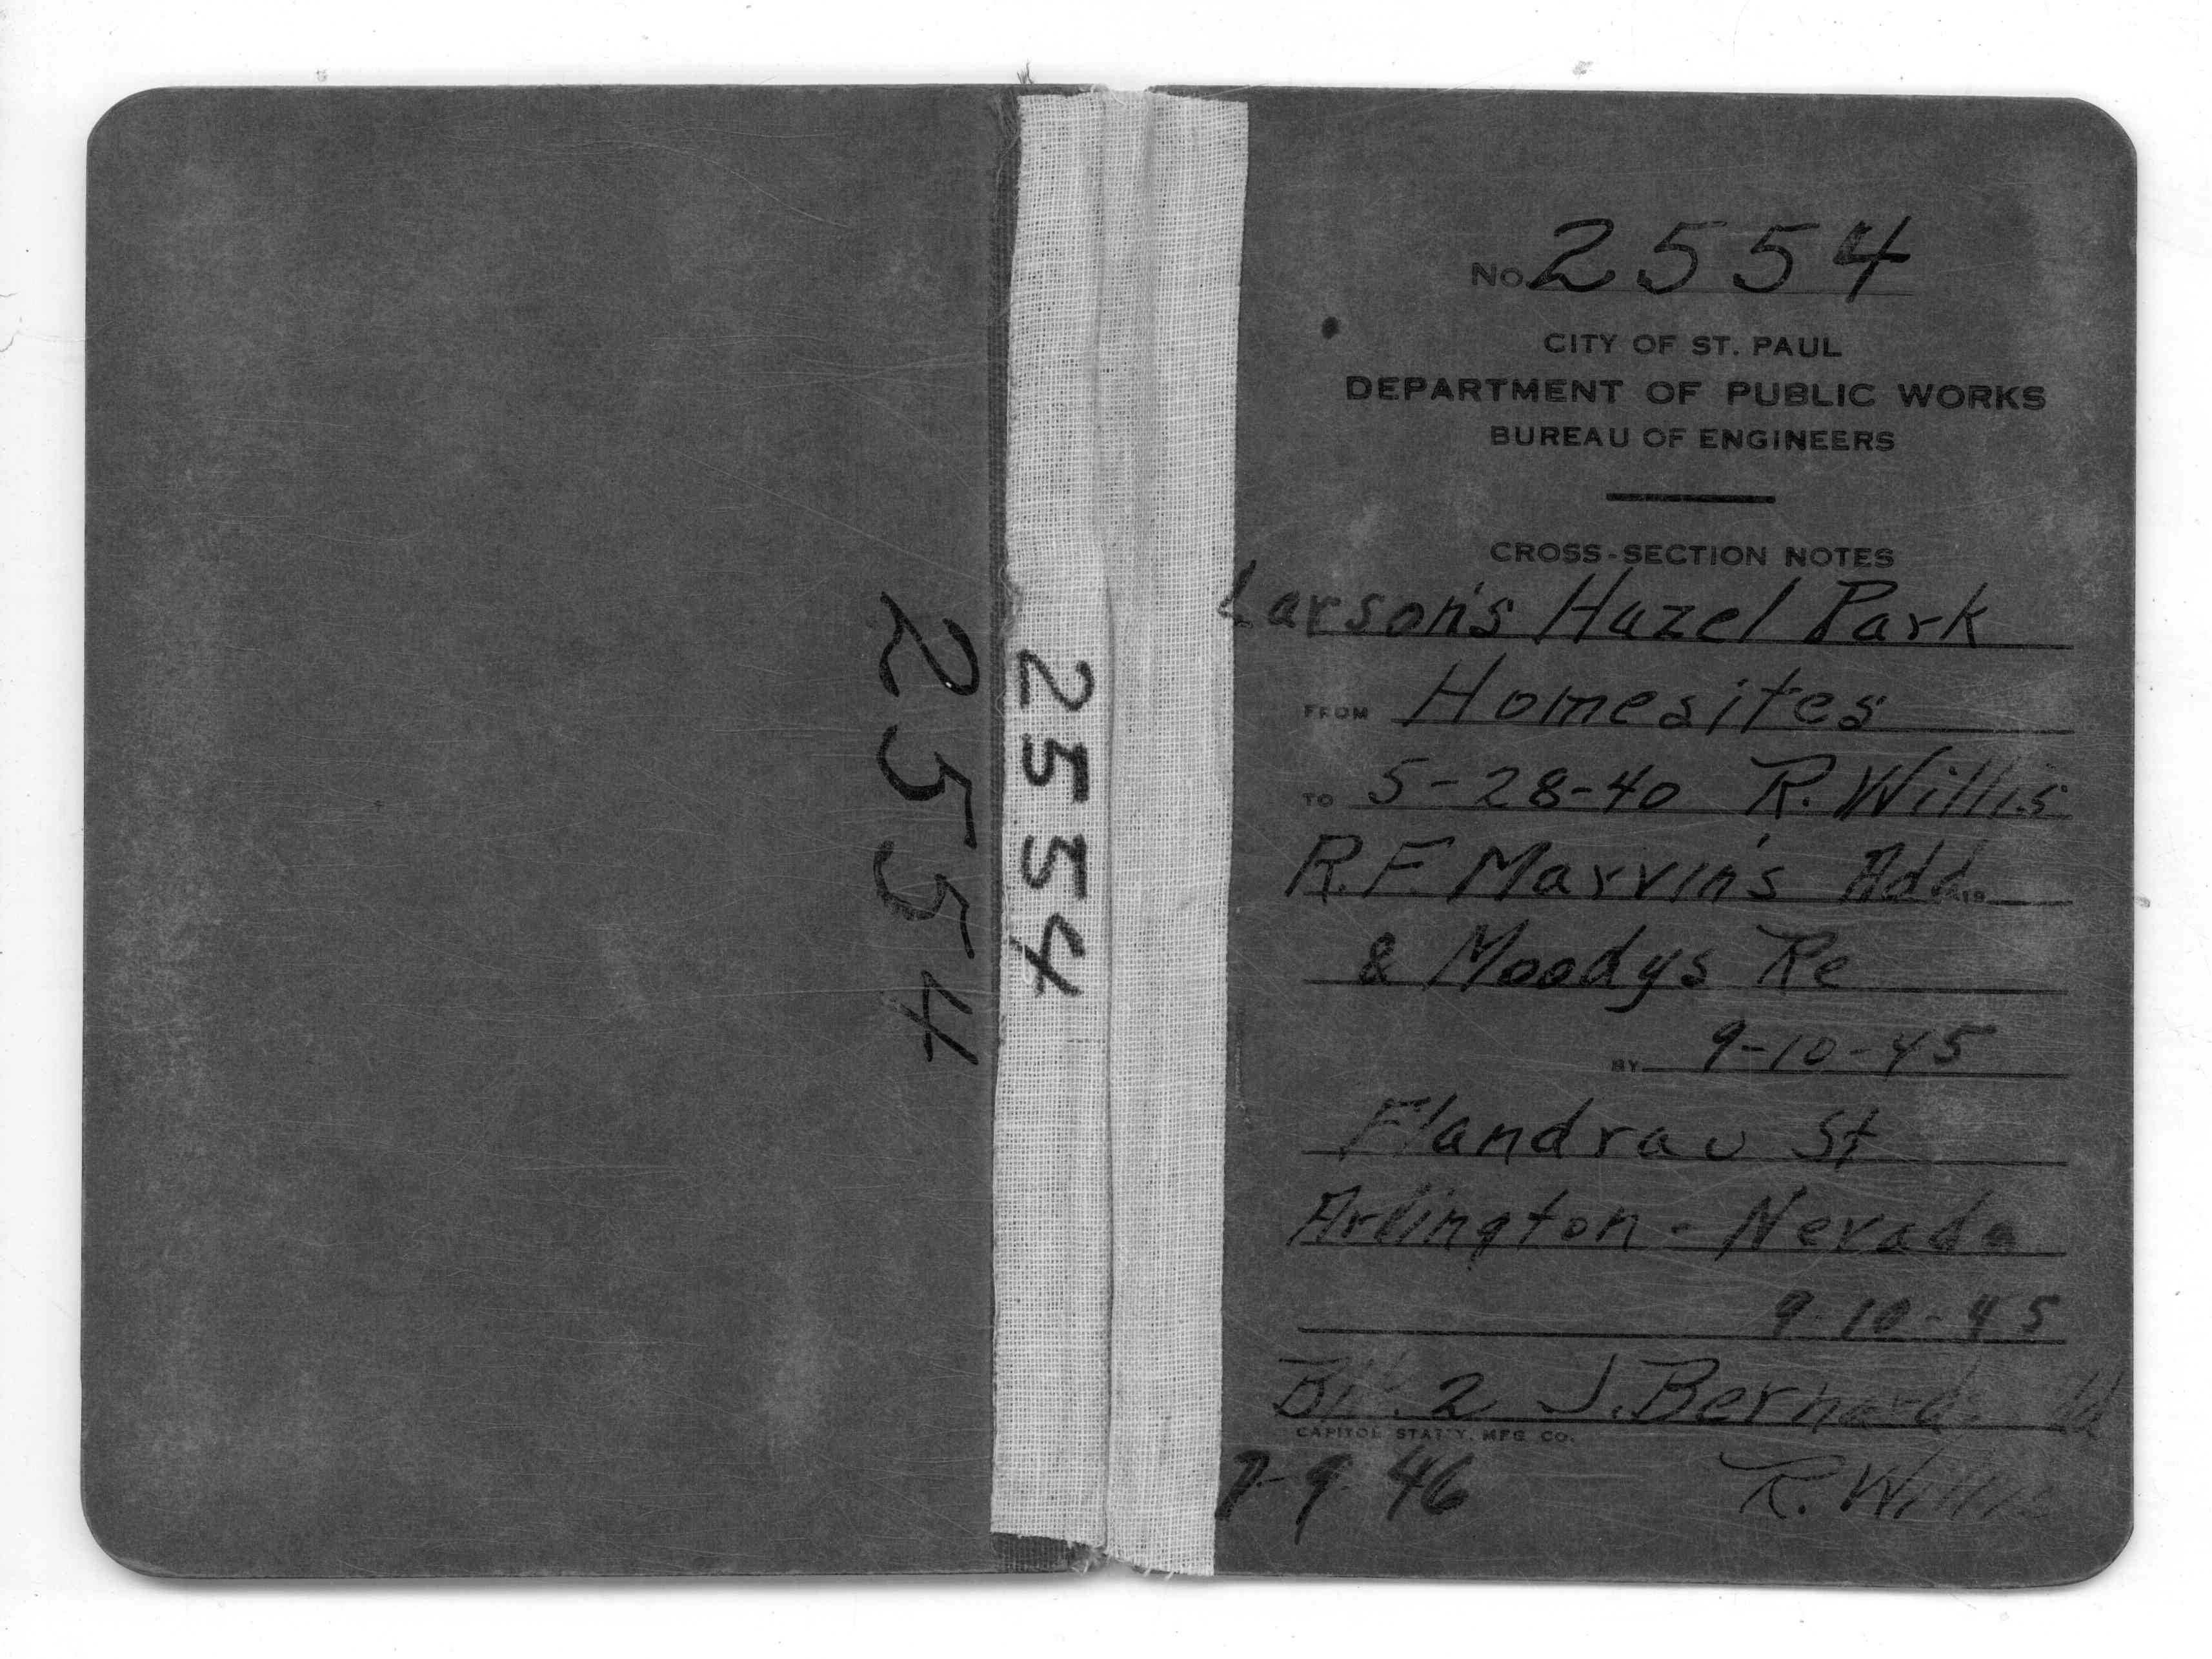 2554
2554
No. 2554
CITY OF ST. PAUL
DEPARTMENT OF PUBLIC WORKS
BUREAU OF ENGINEERS
CROSS-SECTION NOTES
Larson's Hazel Park
FROM Homesites
TO 5-28-40 R. Willis
R.F. Marvin's Add.
& Moodys Re
BY 9-10-45
Flandrau St
Arlington - Nevada
9-10-45
2 J. Bernard
CAPITOL STAT'Y. MFG. CO.
9-46 R. Willis